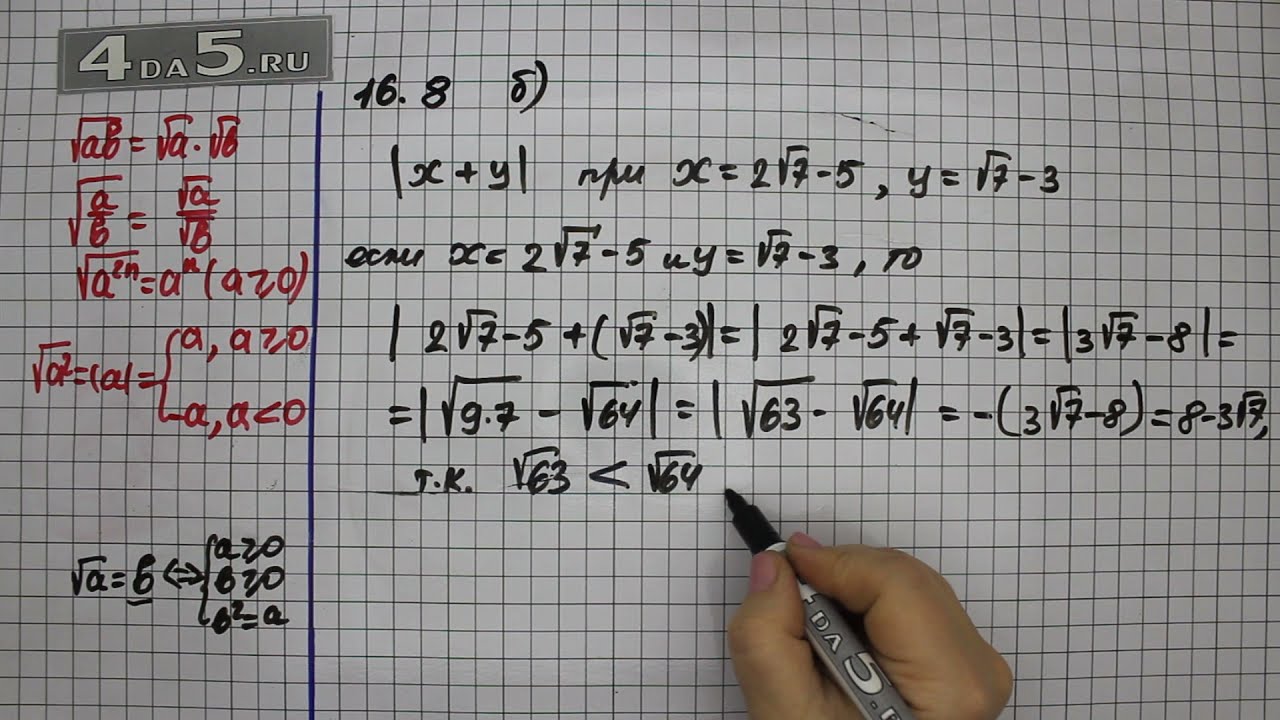 4DA5.RU
√ab = √a · √b
√(a/b) = √a/√b
√(a²ⁿ) = aⁿ (a ≥ 0)
√a² = |a| = { a, a ≥ 0
-a, a < 0
√a = b ⇔ { a ≥ 0
b ≥ 0
b² = a
16.8 б)
|x + y| при x = 2√7 - 5, y = √7 - 3
если x = 2√7 - 5 и y = √7 - 3, то
| 2√7 - 5 + (√7 - 3)| = | 2√7 - 5 + √7 - 3| = |3√7 - 8| =
= |√9·7 - √64| = | √63 - √64| = -(3√7 - 8) = 8 - 3√7,
т.к. √63 < √64
4DA5.